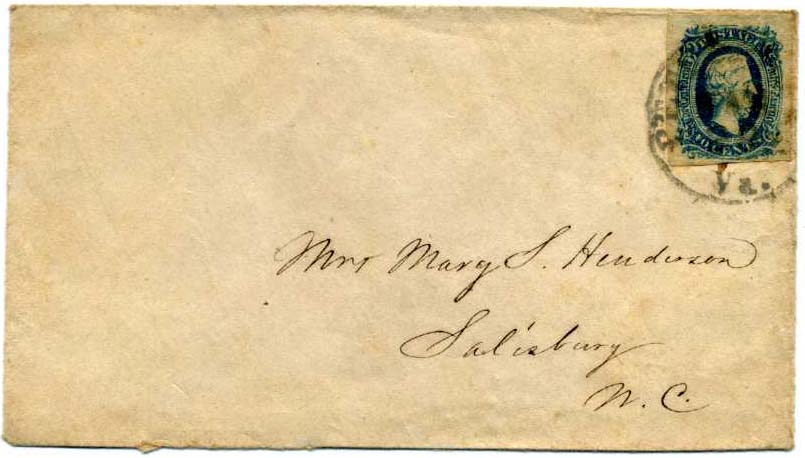 VA.
Mrs Mary S. Henderson
Salisbury
N. C.